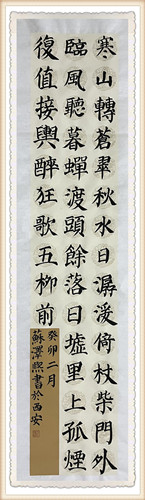 寒山轉蒼翠秋水日潺湲倚杖柴門外
臨風聽暮蟬渡頭餘落日墟里上孤煙
復值接輿醉狂歌五柳前
癸卯二月
蘇澤熙書於西安